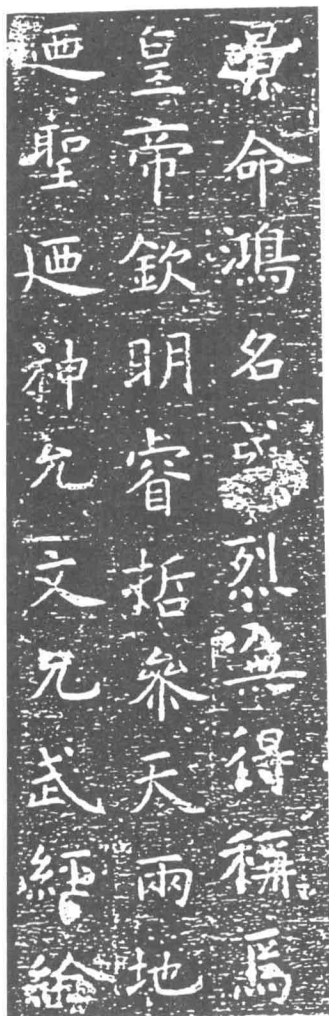 景命鴻名烈無得稱焉
皇帝欽明睿哲叅天兩地
迺聖迺神允文允武經綸